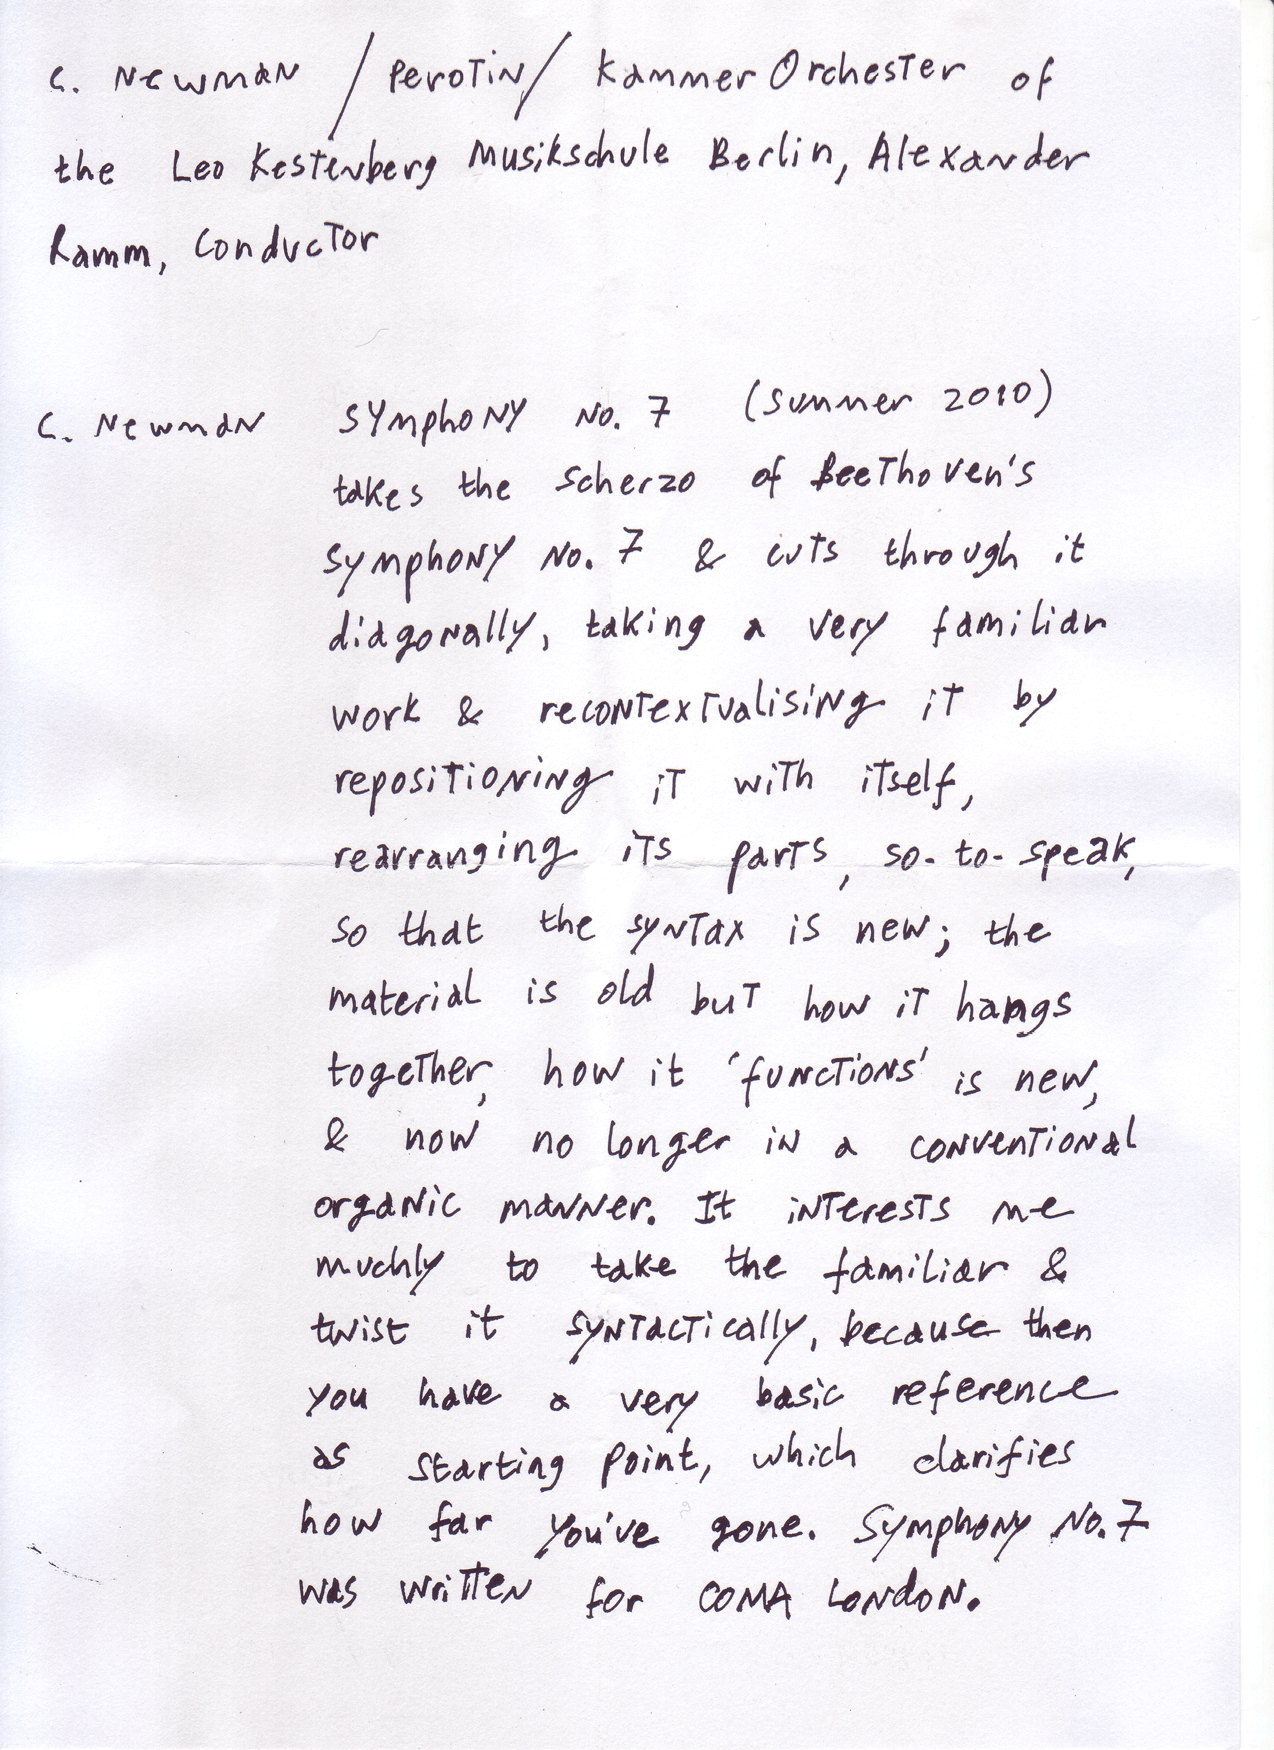 C. Newman / Perotin / KammerOrchester of
the Leo Kestenberg Musikschule Berlin, Alexander
Ramm, Conductor
C. Newman Symphony No. 7 (Summer 2010)
takes the Scherzo of Beethoven's
Symphony No. 7 & cuts through it
diagonally, taking a very familiar
work & recontextualising it by
repositioning it with itself,
rearranging its parts, so-to-speak,
so that the syntax is new; the
material is old but how it hangs
together, how it 'functions' is new,
& now no longer in a conventional
organic manner. It interests me
muchly to take the familiar &
twist it syntactically, because then
you have a very basic reference
as starting point, which clarifies
how far you've gone. Symphony No. 7
was written for COMA London.